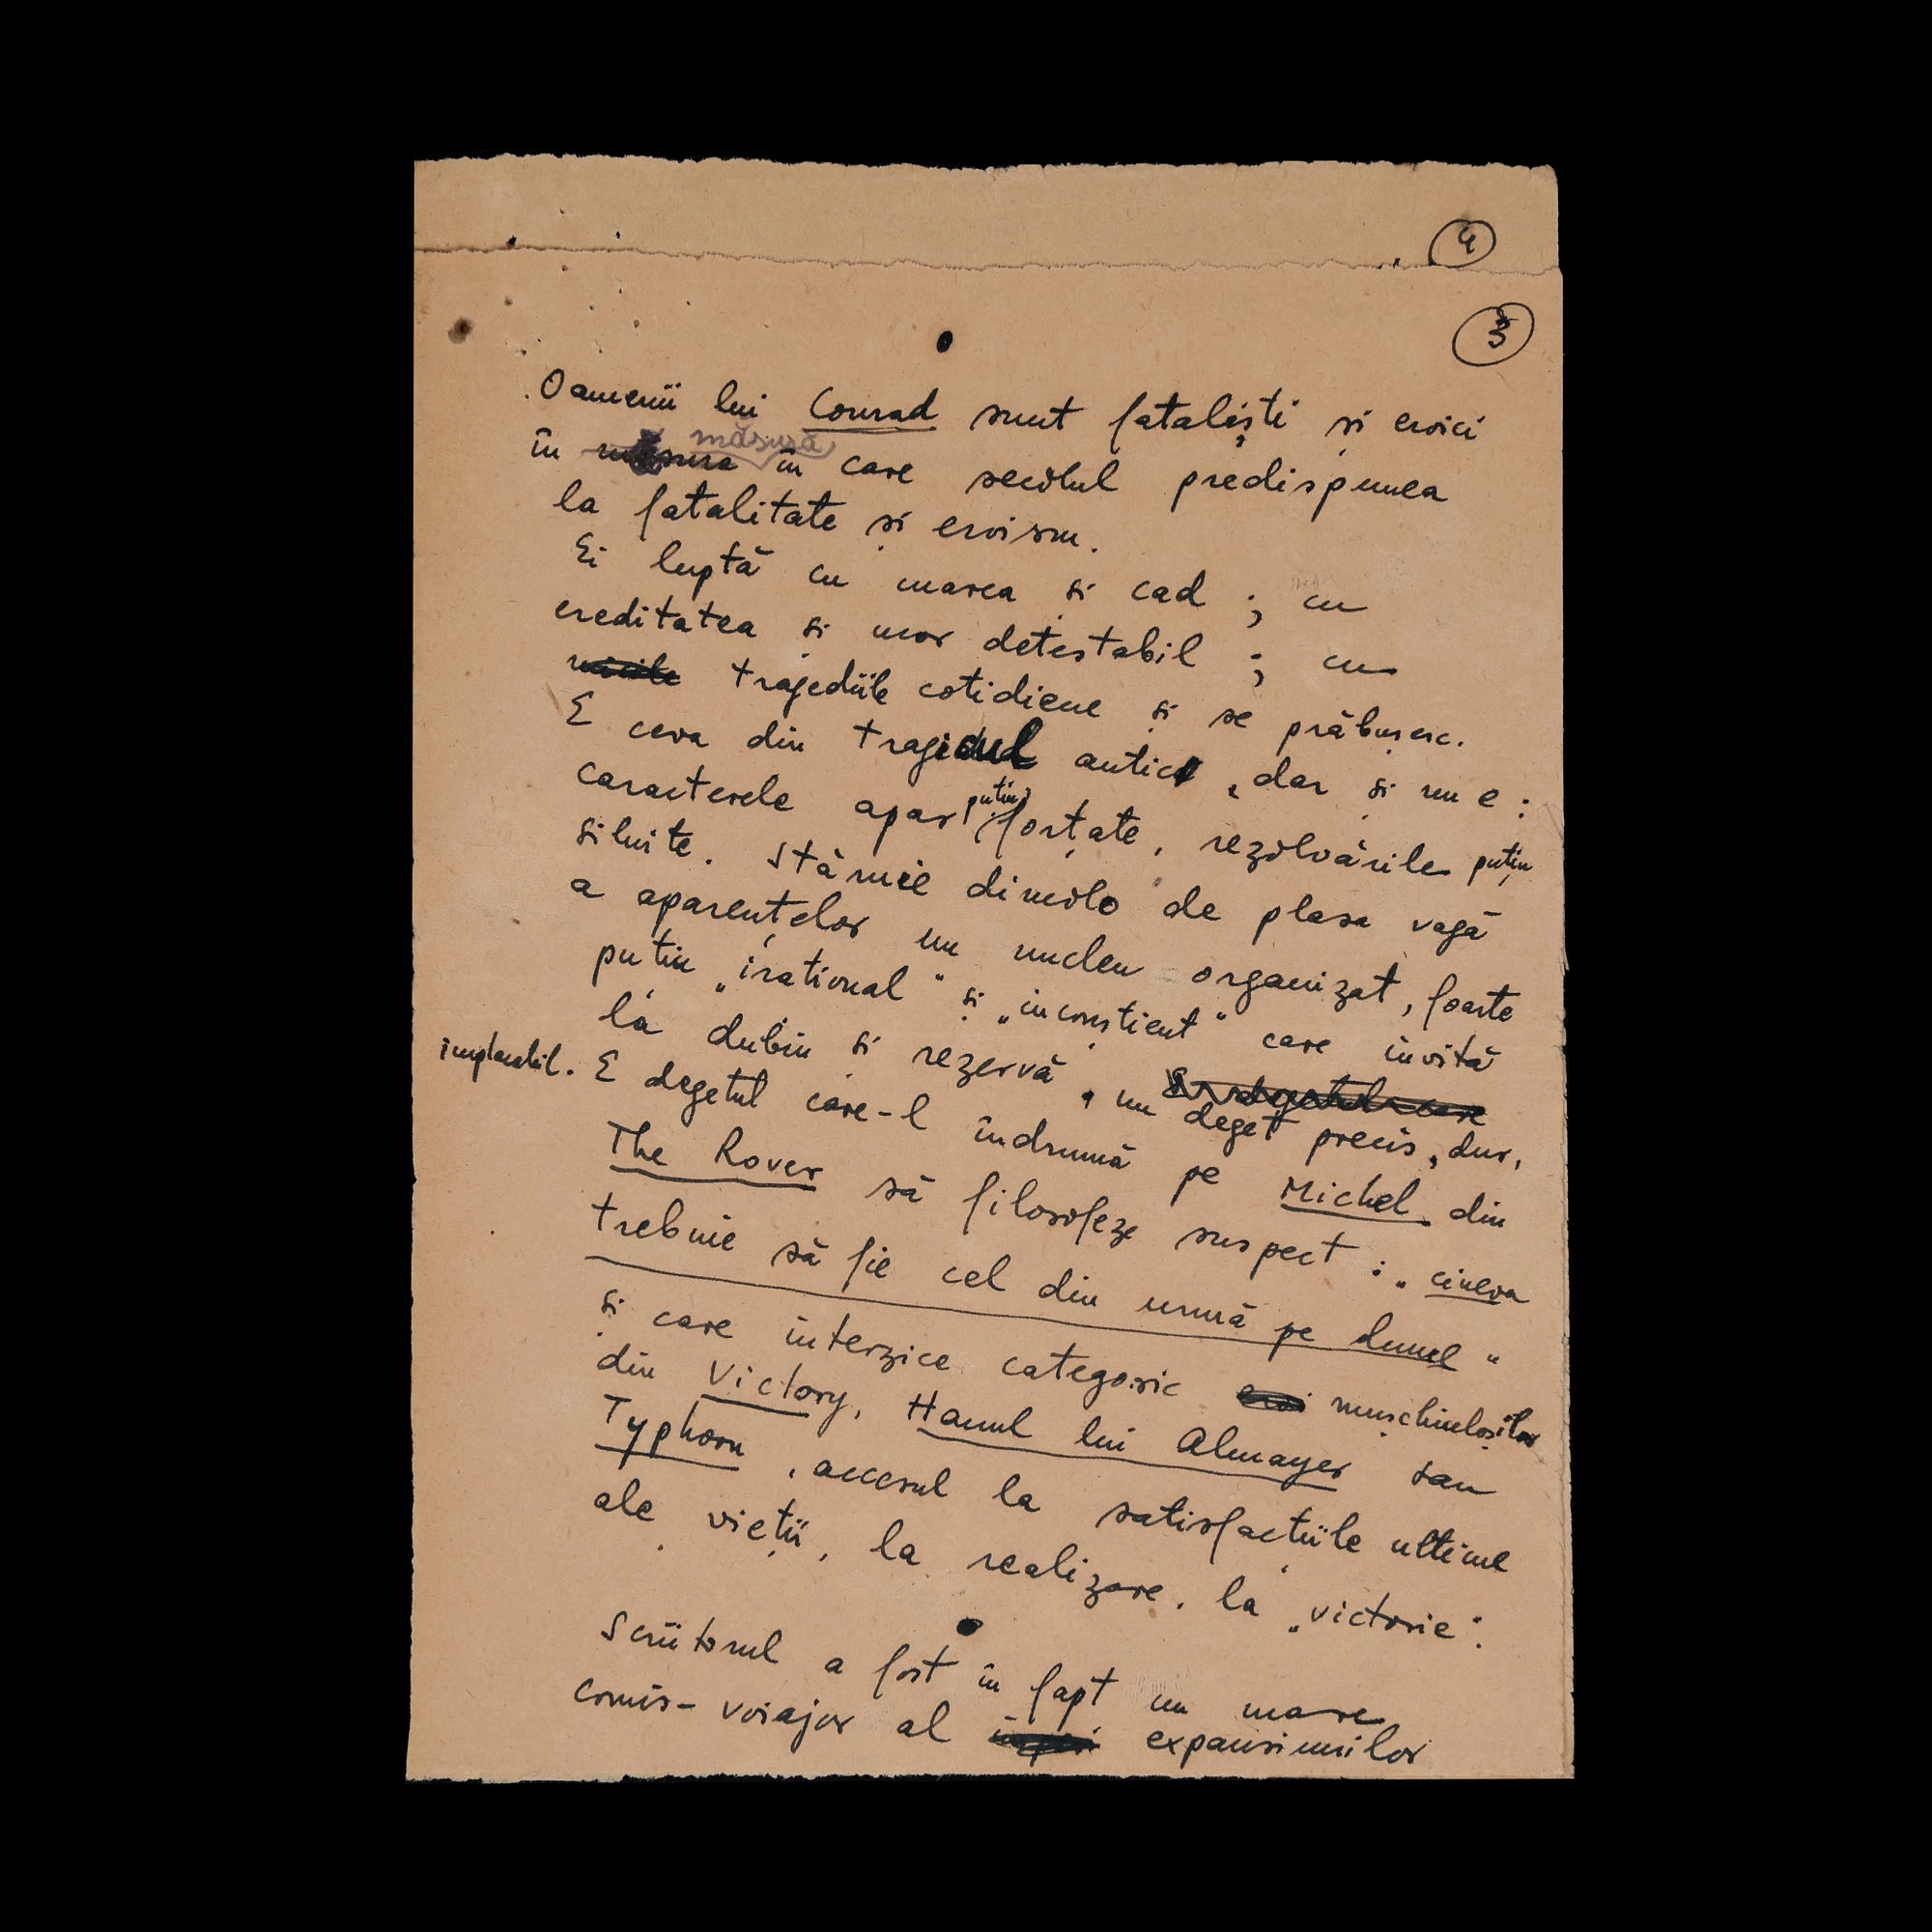 4
3
Oamenii lui Conrad sunt fataliști și eroici
în măsură în care secolul predispunea
la fatalitate și eroism.
Ei luptă cu marea și cad ; cu
ereditatea și mor detestabil ; cu
tragediile cotidiene și se prăbușesc.
E ceva din tragicul antic, dar și nu e :
caracterele apar puțin forțate, rezolvările puțin
siluite. Stăruie dincolo de plasa vagă
a aparențelor un nucleu organizat, foarte
puțin „irațional" și „inconștient" care invită
la dubiu și rezervă, un deget precis, dur,
implacabil. E degetul care-l îndrumă pe Michel din
The Rover să filosofeze suspect : „cineva
trebuie să fie cel din urmă pe lume"
și care interzice categoric mușchiuloșilor
din Victory, Hanul lui Almayer sau
Typhoon, accesul la satisfacțiile ultime
ale vieții, la realizare, la „victorie".
Scriitorul a fost în fapt un mare
comis-voiajor al expansiunilor